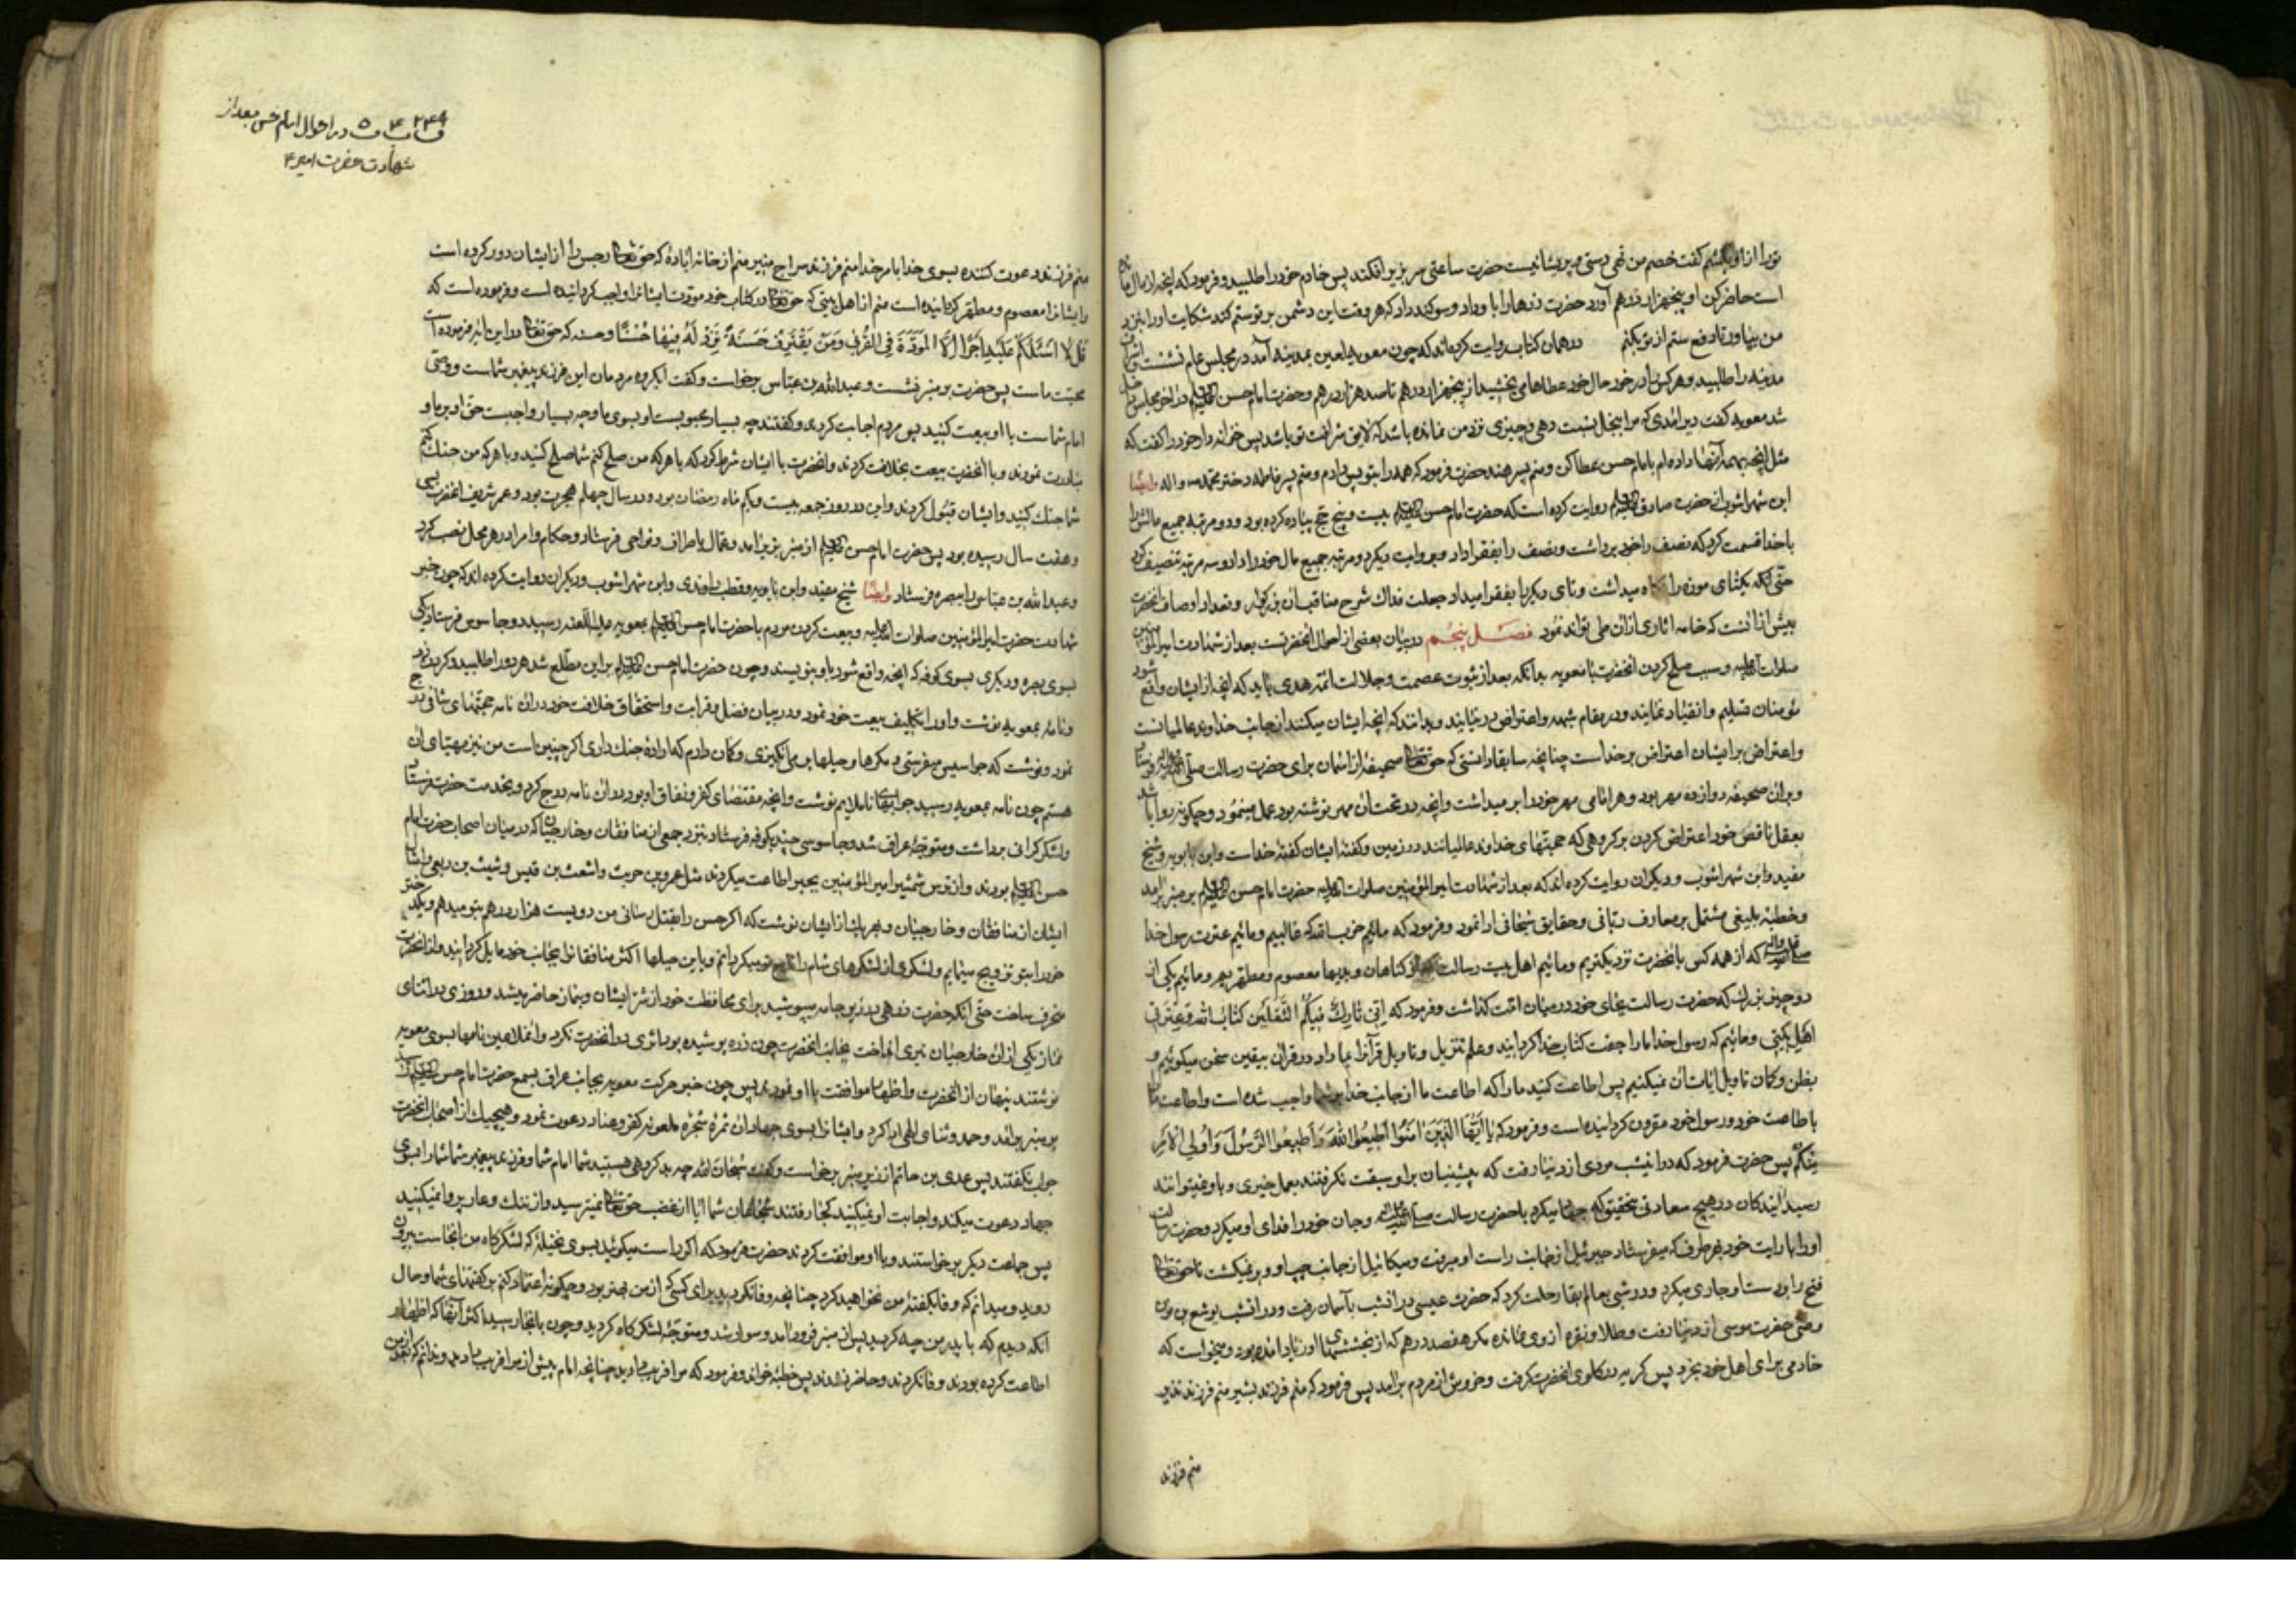 تو را از او بکشم گفت خصم من تهی دستی و پریشانیست حضرت ساعتی سر بزیر افکند پس خادم خود را طلبید و فرمود که آنچه از مال ما نزد
است حاضر کن او پنجهزار درهم آورد حضرت زرها را باو داد و سوکند داد که هر وقت این دشمن بر تو ستم کند شکایت او را بنزد
من بیاور تا دفع ستم از تو بکنم در همان کتاب روایت کرده‌اند که چون معویه لعین بمدینه آمد در مجلس عام نشست
مدینه را طلبید و هر کس را در خور حال خود عطاها می بخشید از پنجهزار درهم تا صد هزار درهم و حضرت امام حسن در آخر مجلس
شد معویه گفت دیر آمدی که مرا ببخل نسبت دهی و چیزی نزد من نمانده باشد که لایق شرافت تو باشد پس خزانه دار خود را گفت که
مثل آنچه بهمه آنها داده‌ام بامام حسن عطا کن و منم پسر هند حضرت فرمود که همه را بتو پس دادم و منم پسر فاطمه دختر محمد ص و اله وایضا
ابن شهراشوب از حضرت صادق روایت کرده است که حضرت امام حسن بیست و پنج حج پیاده کرده بود و دو مرتبه جمیع مالش را
با خدا قسمت کرد که نصف را خود برداشت و نصف را بفقرا داد و بروایت دیگر دو مرتبه جمیع مال خود را داد و سه مرتبه تنصیف کرد
حتی آنکه یکتای موزه را نکاه میداشت و تای دیگر را بفقرا میداد جعلت فداک شرح مناقب آن بزرگوار و تعداد اوصاف آنحضرت
بیش از آنست که خامه اثاری از آن طی تواند نمود فصل پنجم در بیان بعضی از احوال آنحضرتست بعد از شهادت امیر المؤمنین
صلوات الله علیه و سبب صلح کردن آنحضرت با معویه بدانکه بعد از ثبوت عصمت و جلالت ائمه هدی باید که آنچه از ایشان واقع شود
مؤمنان تسلیم و انقیاد نمایند و در مقام شبهه و اعتراض در نیایند و بدانند که آنچه ایشان میکنند از جانب خداوند عالمیانست
و اعتراض بر ایشان اعتراض بر خداست چنانچه سابقا دانستی که حق تعالی صحیفهٔ از آسمان برای حضرت رسالت صلی الله علیه و آله فرستاد
و بر آن صحیفه دوازده مهر بود و هر امامی مهر خود را بر میداشت و آنچه در تحت آن مهر نوشته بود عمل مینمود و چگونه روا باشد
بعقل ناقص خود اعتراض کردن بر گروهی که حجتهای خداوند عالمیانند در زمین و کفتهٔ ایشان کفتهٔ خداست و ابن بابویه و شیخ
مفید و ابن شهراشوب و دیگران روایت کرده اند که بعد از شهادت امیر المؤمنین صلوات الله علیه حضرت امام حسن بر منبر برآمد
و خطبهٔ بلیغی مشتمل بر معارف ربانی و حقایق سبحانی ادا نمود و فرمود که مائیم حزب الله که غالبیم و مائیم عترت رسول خدا
صلی الله علیه و آله که از همه کس بآنحضرت نزدیکتریم و مائیم اهل بیت رسالت که از کناهان و بدیها معصوم و مطهریم و مائیم یکی از
دو چیز بزرک که حضرت رسالت بجای خود در میان امت کذاشت و فرمود که اِنّی تارِکٌ فِیکُمُ الثَّقَلَینِ کتابَ اللهِ وَ عِترَتی
اَهلَ بَیتی و مائیم که رسول خدا ما را جفت کتاب خدا کردانید و علم تنزیل و تاویل قرآنرا بما داد و در قرآن بیقین سخن میکوئیم و
بظن و کمان تاویل آیات آن نمیکنیم پس اطاعت کنید ما را که اطاعت ما از جانب خدا بر شما واجب شده است و اطاعت ما را
با طاعت خود و رسول خود مقرون کردانیده است و فرمود که یا اَیُّهَا الَّذینَ امَنُوا اَطیعُوا اللهَ وَ اَطیعُوا الرَّسُولَ وَ اُولِی الاَمرِ
مِنکُم پس حضرت فرمود که در این شب مردی از دنیا رفت که پیشینیان بر او سبقت نکرفتند بعمل خیری و باو نمیتوانند
رسید آیندکان در هیچ سعادتی بتحقیق که جهاد میکرد با حضرت رسالت صلی الله علیه و آله و جان خود را فدای او میکرد و حضرت رسالت
او را با رایت خود بهر طرف که میفرستاد جبرئیل از جانب راست او میرفت و میکائیل از جانب چپ او و بر نمیکشت تا حق تعالی
فتح را بدست او جاری میکرد و در شبی بعالم بقا رحلت کرد که حضرت عیسی در آنشب بآسمان رفت و در آنشب یوشع بن نون
وصی حضرت موسی از دنیا رفت و طلا و نقره از وی نمانده مکر هفصد درهم که از بخششهای او زیاد آمده بود و میخواست که
خادمی برای اهل خود بخرد پس کریه در کلوی آنحضرت کرفت و خروش از مردم برآمد پس فرمود که منم فرزند بشیر منم فرزند نذیر
منم فرزند
۲۴۹ ۴ ۵
ق ب ف در احوال امام حسن بعد از
شهادت حضرت امیر ع
منم فرزند دعوت کننده بسوی خدا بامر خدا منم فرزند سراج منیر منم از خانه ابادهٔ که حق تعالی رجس را از ایشان دور کرده است
و ایشانرا معصوم و مطهر کردانیده است منم از اهل بیتی که حق تعالی در کتاب خود مودت ایشانرا واجب کردانیده است و فرموده است که
قُل لا اَسئَلُکُم عَلَیهِ اَجرًا اِلَّا المَوَدَّةَ فِی القُربی وَ مَن یَقتَرِف حَسَنَةً نَزِد لَهُ فیها حُسنًا و حسنه که حق تعالی در این آیه فرموده است
محبت ماست پس حضرت بر منبر نشست و عبدالله بن عباس برخواست و کفت ایکروه مردمان این فرزند پیغمبر شماست و وصی
امام شماست با او بیعت کنید پس مردم اجابت کردند و کفتند چه بسیار محبوبست او بسوی ما و چه بسیار واجبست حق او بر ما و
مبادرت نمودند و با آنحضرت بیعت بخلافت کردند و آنحضرت با ایشان شرط کرد که با هر که من صلح کنم شما صلح کنید و با هر که من جنک کنم
شما جنک کنید و ایشان قبول کردند و این در روز جمعه بیست و یکم ماه رمضان بود در سال چهلم هجرت بود و عمر شریف آنحضرت بسی
و هفت سال رسیده بود پس حضرت امام حسن از منبر بزیر آمد و عمال باطراف و نواحی فرستاد و حکام و امرا در هر محل نصب کرد
و عبدالله بن عباس را ببصره فرستاد وایضا شیخ مفید و ابن بابویه و قطب راوندی و ابن شهراشوب و دیگران روایت کرده اند که چون خبر
شهادت حضرت امیرالمؤمنین صلوات الله علیه و بیعت کردن مردم با حضرت امام حسن بمعویه علیه اللعنه رسید دو جاسوس فرستاد یکی
بسوی بصره و دیگری بسوی کوفه که آنچه واقع شود باو بنویسند و چون حضرت امام حسن بر این مطلع شد هر دو را طلبید و کردن زد
و نامه بمعویه نوشت و او را تکلیف بیعت خود نمود و در بیان فضل و قرابت و استحقاق خلافت خود در آن نامه حجتهای شافی درج
نمود و نوشت که جواسیس میفرستی و مکرها و حیلها بر می‌انکیزی و کمان دارم که ارادهٔ جنک داری اکر چنین است من نیز مهیای آن
هستم چون نامه بمعویه رسید جوابهای ناملایم نوشت و آنچه مقتضای کفر و نفاق او بود در آن نامه درج کرد و بخدمت حضرت فرستاد
و لشکر کرانی برداشت و متوجه عراق شد و جاسوسی چند بکوفه فرستاد بنزد جمعی از منافقان و خارجیان که در میان اصحاب حضرت امام
حسن بودند و از ترس شمشیر امیر المؤمنین بجبر اطاعت میکردند مثل عمرو بن حریث و اشعث بن قیس و شبث بن ربعی و امثال
ایشان از منافقان و خارجیان و بهر یک از ایشان نوشت که اکر حسن را بقتل رسانی من دویست هزار درهم بتو میدهم و یکدختر
خود را بتو تزویج مینمایم و لشکری از لشکرهای شام را تابع تو میکردانم و باین حیلها اکثر منافقانرا بجانب خود مایل کردانید و از آنحضرت
منحرف ساخت حتی آنکه حضرت زرهی در زیر جامه میپوشید برای محافظت خود از شر ایشان و بنماز حاضر میشد و روزی در اثنای
نماز یکی از آن خارجیان تیری انداخت بجانب آنحضرت چون زره پوشیده بود اثری در آنحضرت نکرد و آن ملاعین نامها بسوی معویه
نوشتند پنهان از آنحضرت و اظهار موافقت با او نمودند پس چون خبر حرکت معویه بجانب عراق بسمع حضرت امام حسن رسید
بر منبر برآمد و حمد و ثنای الهی ادا کرد و ایشانرا بسوی جهاد آن ثمرهٔ شجرهٔ ملعونه کفر و عناد دعوت نمود و هیچیک از اصحاب آنحضرت
جواب نکفتند پس عدی بن حاتم از زیر منبر برخواست و کفت سبحان الله چه بد کروهی هستید شما امام شما و فرزند پیغمبر شما شما را بسوی
جهاد دعوت میکند و اجابت او نمیکنید کجا رفتند شجاعان شما آیا از غضب حق تعالی نمیترسید و از ننک و عار پروا نمیکنید
پس جماعت دیگر برخواستند و با او موافقت کردند حضرت فرمود که اکر راست میکوئید بسوی نخیله که لشکرکاه من آنجاست بیرون
روید و میدانم که وفا بکفتهٔ من نخواهید کرد چنانچه وفا نکردید برای کسی که از من بهتر بود و چکونه اعتماد کنم بر کفتهای شما و حال
آنکه دیدم که با پدر من چه کردید پس از منبر فرود آمد و سوار شد و متوجهٔ لشکرکاه کردید و چون بآنجا رسید اکثر آنها که اظهار
اطاعت کرده بودند وفا نکردند و حاضر نشدند پس خطبهٔ خواند و فرمود که مرا فریب دادید چنانچه امام پیش از مرا فریب دادید و ندانم که بعد از من